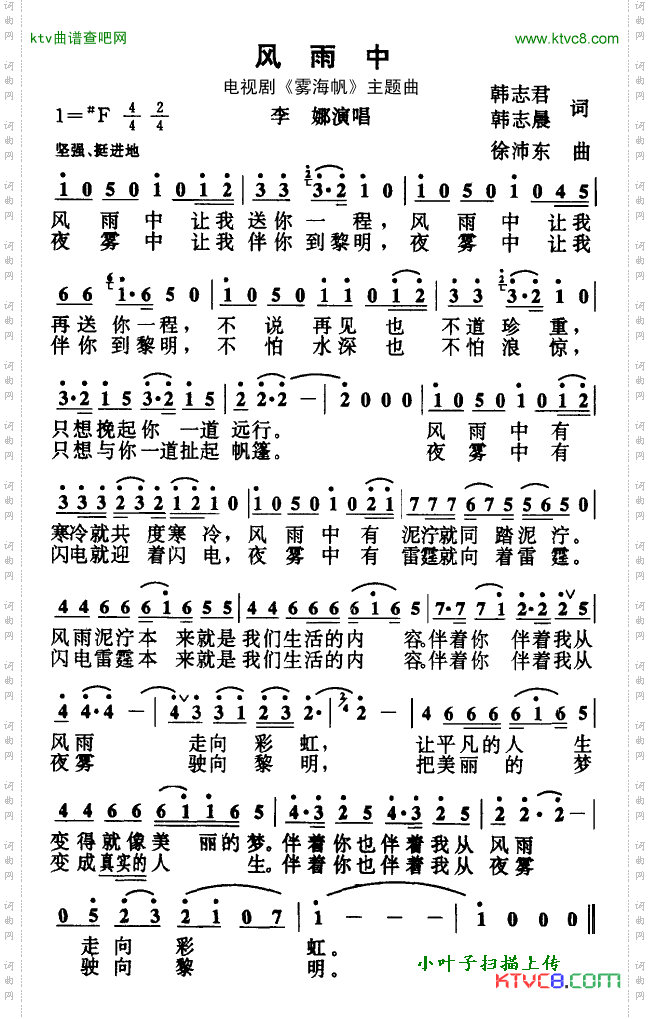 ktv曲谱查吧网
www.ktvc8.com
风雨中
电视剧《雾海帆》主题曲
1=#F 4/4 2/4
李娜演唱
韩志君 词
韩志晨
坚强、挺进地
徐沛东 曲
1 0 5 0 1 0 1 2 | 3 3 3·2 1 0 | 1 0 5 0 1 0 4 5 |
风 雨 中 让我 送你 一 程， 风 雨 中 让我
夜 雾 中 让我 伴你 到黎明， 夜 雾 中 让我
6 6 1·6 5 0 | 1 0 5 0 1 1 0 1 2 | 3 3 3·2 1 0 |
再送 你一程， 不 说 再见 也 不道 珍 重，
伴你 到黎明， 不 怕 水深 也 不怕 浪 惊，
3·2 1 5 3·2 1 6 5 5 | 2 2·2 — | 2 0 0 0 | 1 0 5 0 1 0 1 2 |
只想挽起你 一道 远行。 风 雨 中 有
只想与你一道扯起 帆篷。 夜 雾 中 有
3 3 3 2 3 2 1 2 1 0 | 1 0 5 0 1 0 2 1 | 7 7 7 6 7 5 5 6 5 0 |
寒冷就共 度寒 冷， 风 雨 中 有 泥泞就同 踏泥 泞。
闪电就迎 着闪 电， 夜 雾 中 有 雷霆就向 着雷霆。
4 4 6 6 6 1 6 5 5 | 4 4 6 6 6 1 6 5 | 7·7 7 1 2·2 2 5 |
风雨泥泞本 来就是我们生活的内 容。伴着你 伴着我从
闪电雷霆本 来就是我们生活的内 容。伴着你 伴着我从
4 4·4 — | 4 3 3 1 2 3 2· | 2/4 2 | 4 6 6 6 6 1 5 |
风雨 走向 彩 虹， 让平凡的人 生
夜雾 驶向 黎 明， 把美丽的 梦
4 4 6 6 6 1 1 6 5 | 4·3 2 5 4·3 2 5 | 2 2·2 — |
变得就像美 丽的梦。伴着你也伴着我从 风雨
变成真实的人 生。伴着你也伴着我从 夜雾
0 5 2 3 2 1 0 7 | 1 — — — | 1 0 0 0 ‖
走向 彩 虹。
驶向 黎 明。
小叶子扫描上传
KTVC8.com
词曲网